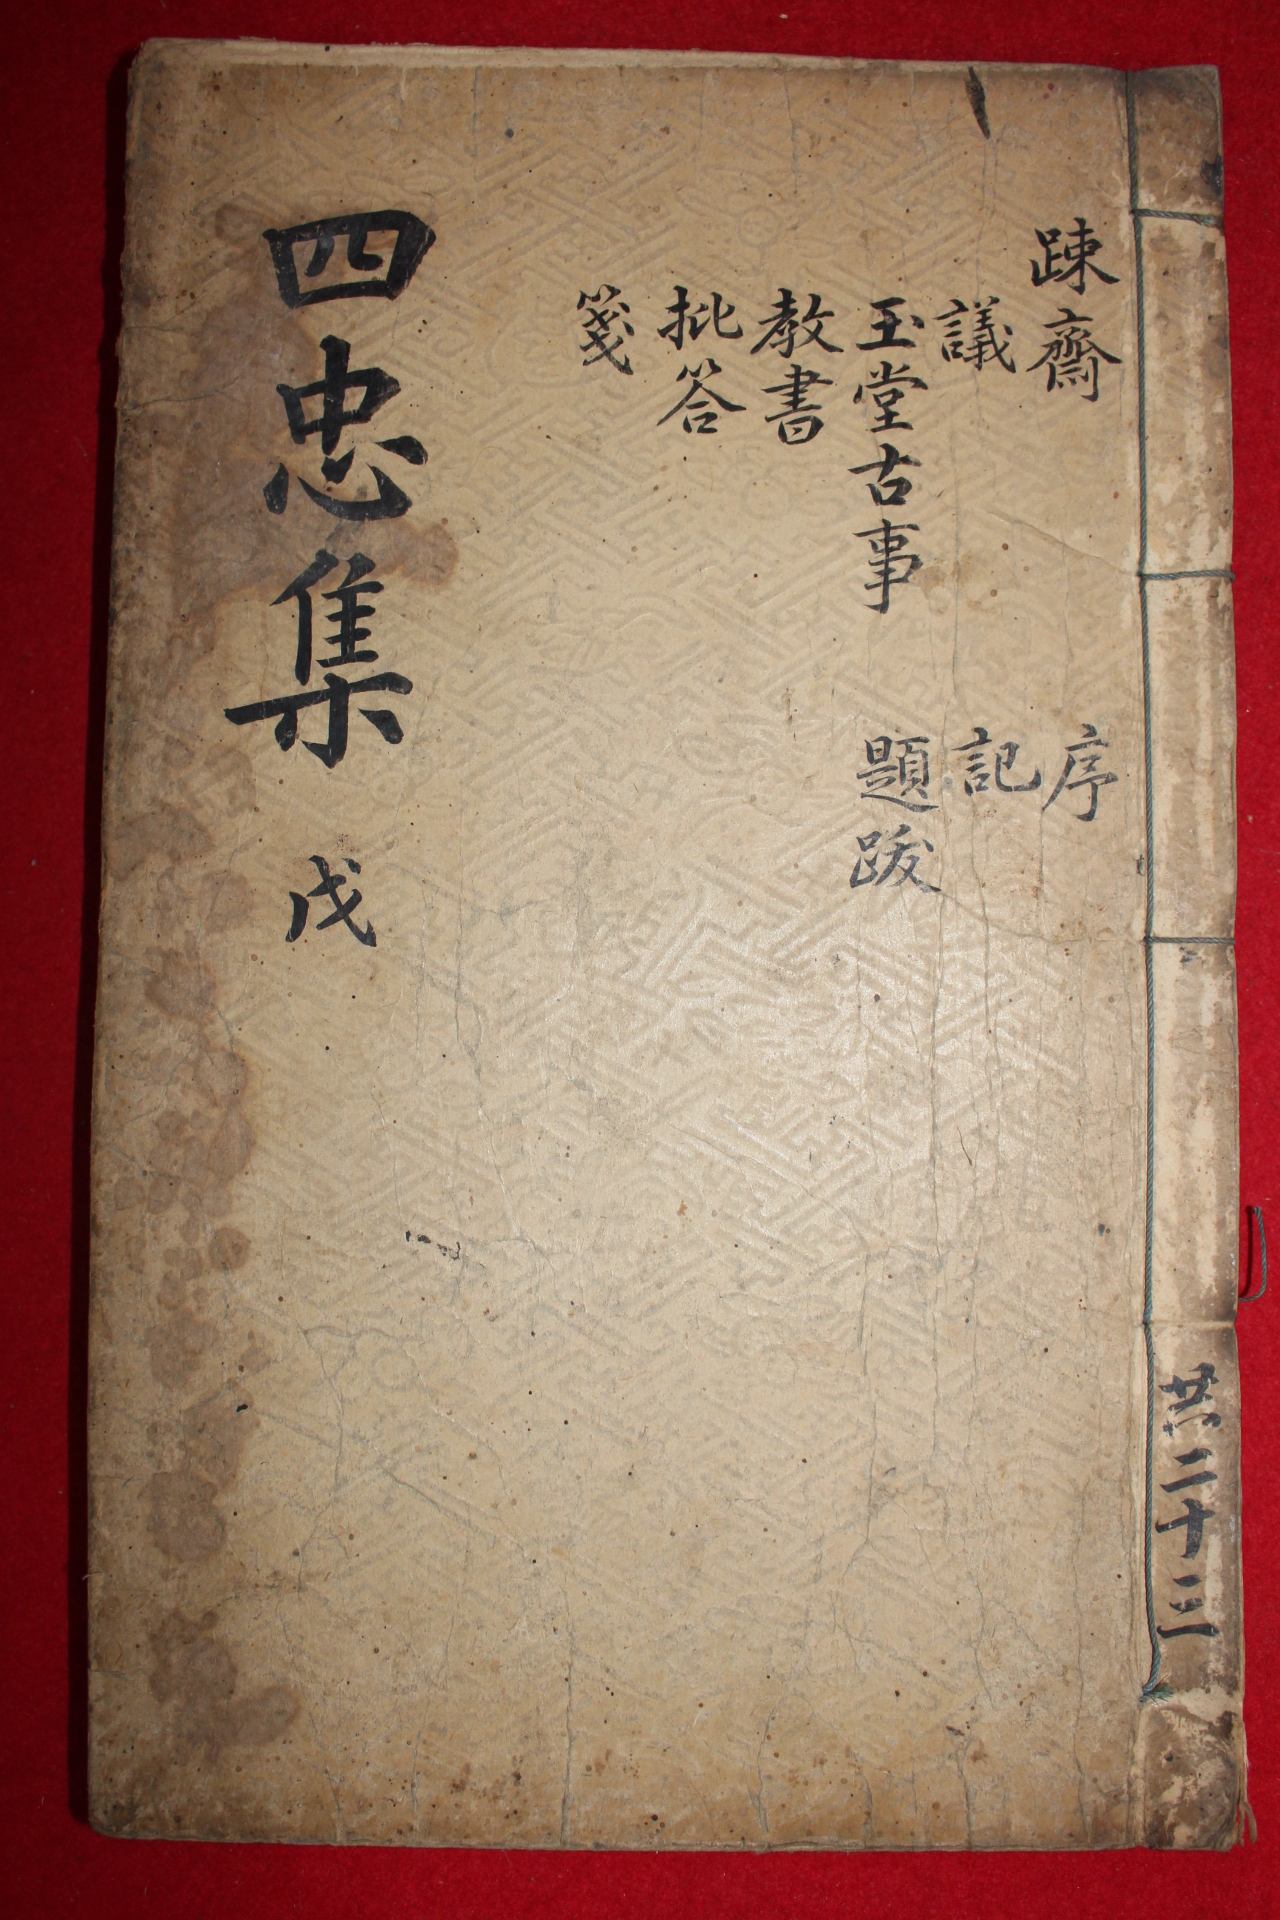 疎齋
議
玉堂古事
教書
批答
箋
序
記
題跋
四忠集 戊
共二十三